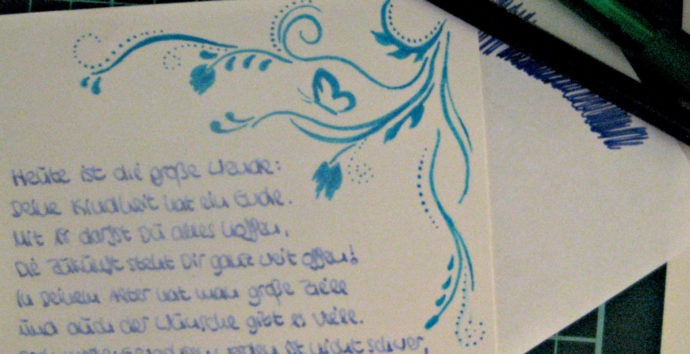 Heute ist die große Wende:
Deine Kindheit hat ein Ende.
Mit 18 darfst Du alles hoffen,
Die Zukunft steht Dir ganz weit offen!
In Deinem Alter hat man große Ziele
und auch der Wünsche gibt es viele.
ist nicht schwer,